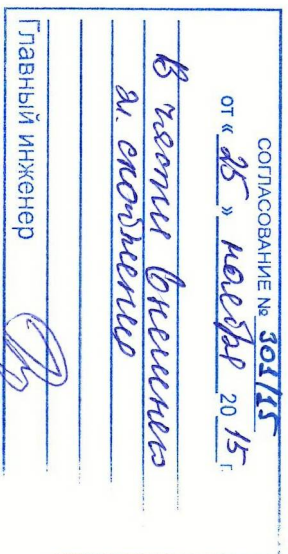 СОГЛАСОВАНИЕ № 301/15
от « 25 » ноября 2015 г.
В части внешнего
эл. снабжения
Главный инженер